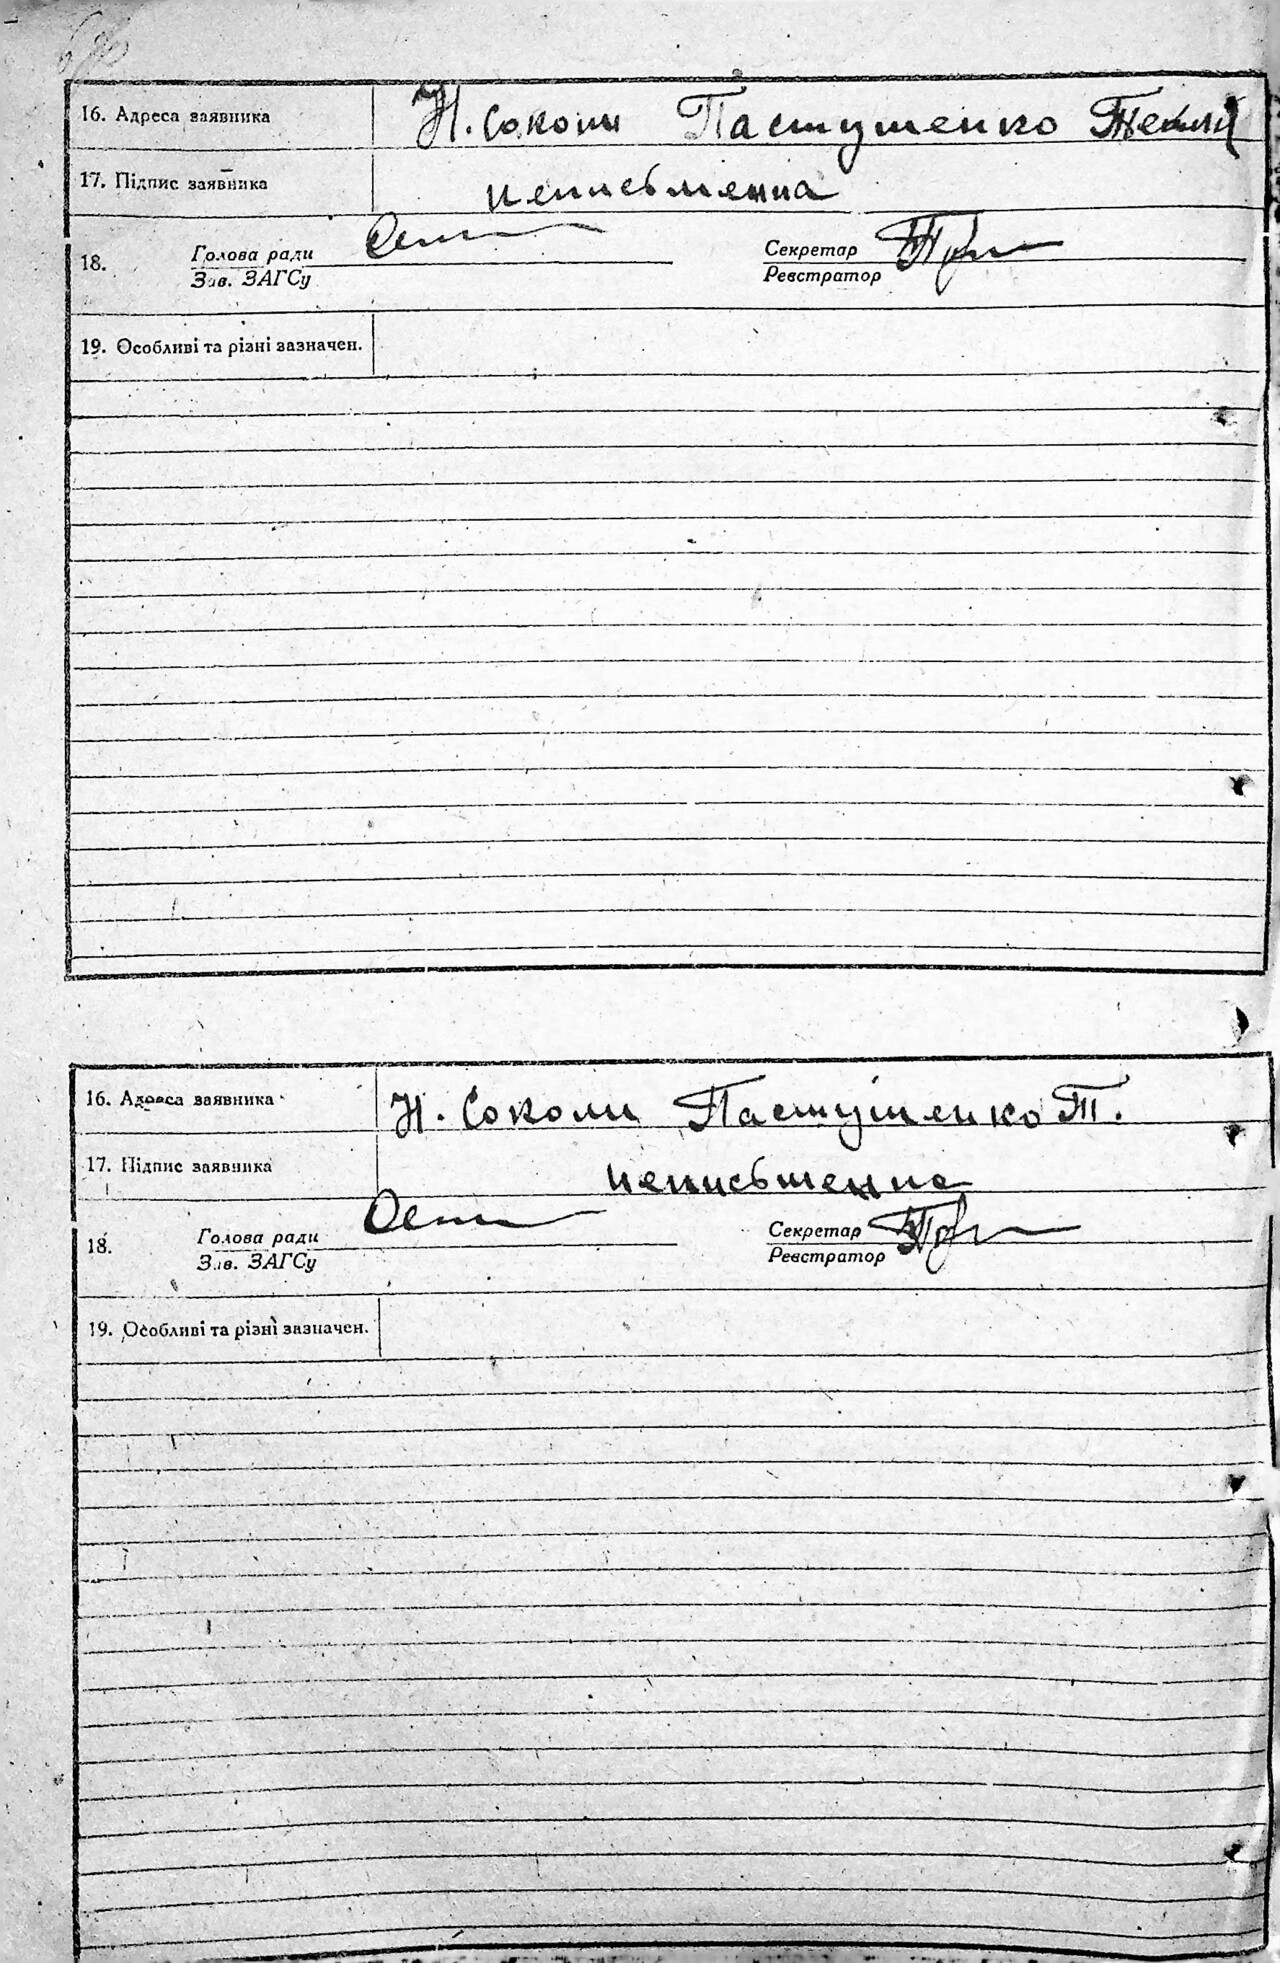 16. Адреса заявника Н. Соколи Пастушенко Текля
17. Підпис заявника неписьменна
18. Голова ради Секретар
Зав. ЗАГСу Реєстратор
19. Особливі та різні зазначен.
16. Адреса заявника Н. Соколи Пастушенко Т.
17. Підпис заявника неписьменна
18. Голова ради Секретар
Зав. ЗАГСу Реєстратор
19. Особливі та різні зазначен.